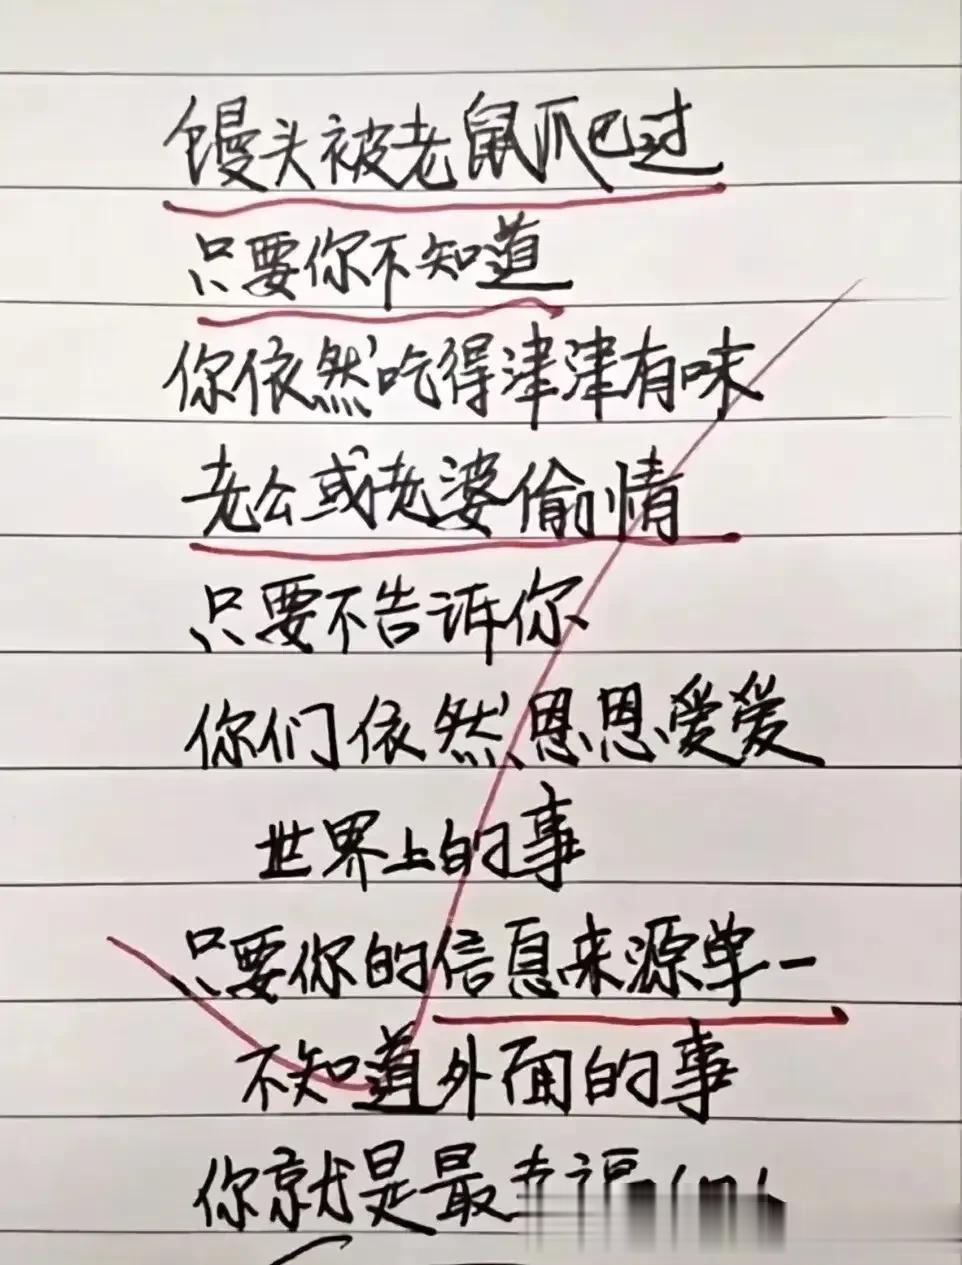 馒头被老鼠爬过
只要你不知道
你依然吃得津津有味
老公或老婆偷情
只要不告诉你
你们依然恩恩爱爱
世界上的事
只要你的信息来源单一
不知道外面的事
你就是最幸福